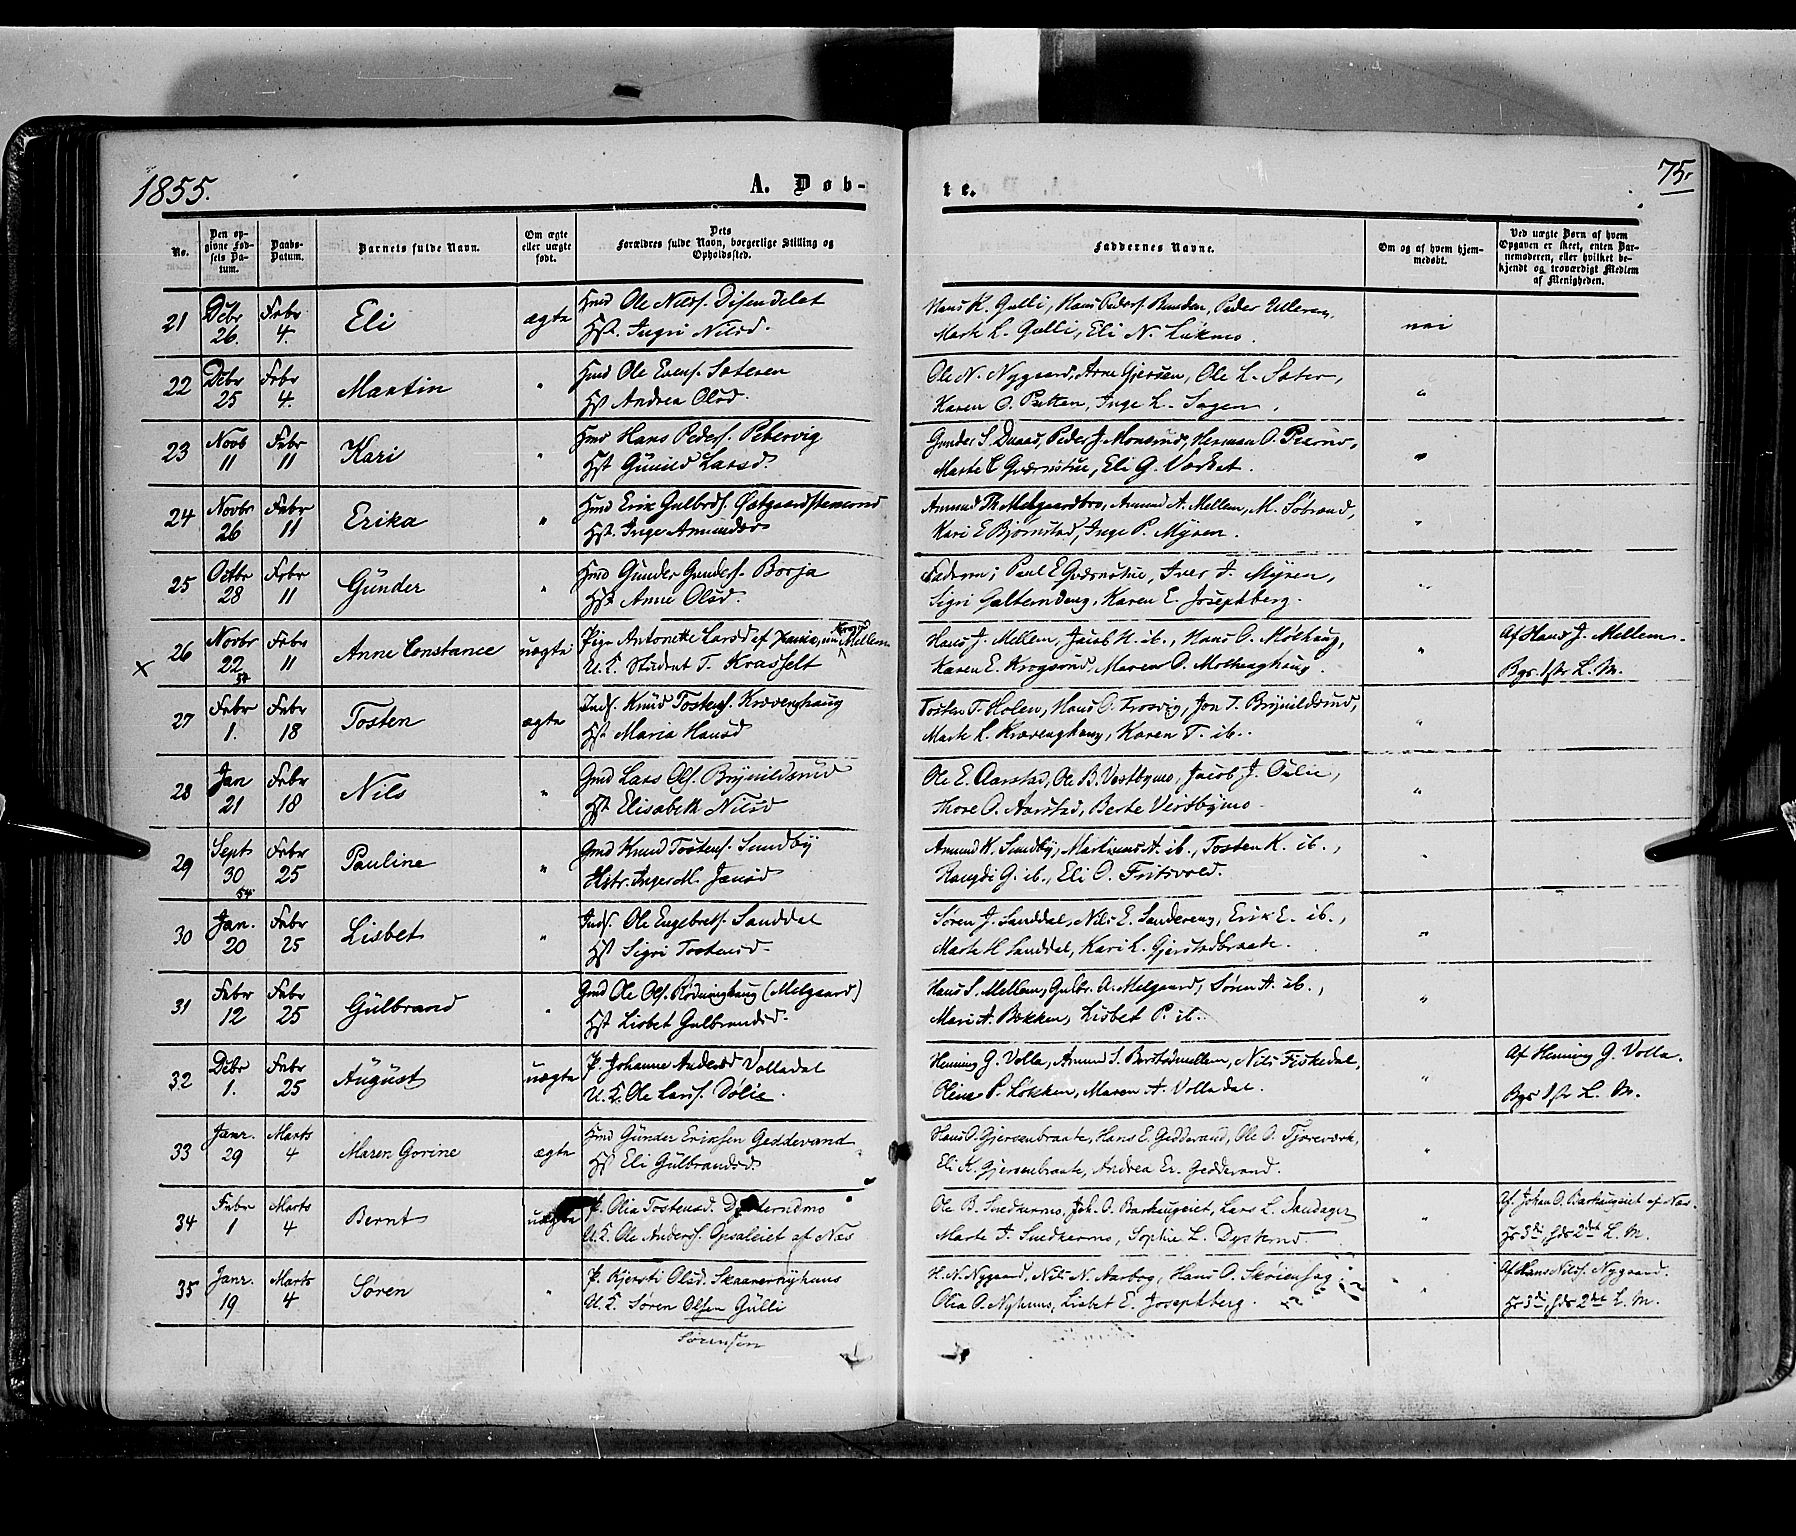 1855.
A. Døb-
te.
75.
No.
Den op-
givne Fød-
sels Da-
tum.
Daabs-
Datum.
Barnets fulde Navn.
Om ægte
eller uægte
født.
Dets
Forældres fulde Navn, borgerlige Stilling og
Opholdssted.
Faddernes Navne.
Om og af hvem hjem-
medøbt.
Ved uægte Børn af hvem
Opgaven er skeet, enten Bar-
nemoderen, eller hvilket be-
kjendt og troværdigt Medlem
af Menigheden.
21 Debr 26. Febr 4. Eli ægte Hmd Ole Nilss. Disendelet
Hst. Ingri Nilsd.
Hans K. Gulli, Hans Peders. Bunden, Peder Ulleren,
Marte L. Gulli, Eli N. Lukmo.
nei
22 Debr 25 Febr 4. Martin " Hmd Ole Evens. Sæteren
Hst Andrea Olsd.
Ole N. Nygaard, Arne Gjersen, Ole L. Sæter,
Karen O. Putten, Inge L. Sagen.
"
23 Novb 11 Febr 11 Kari " Hmd Hans Peders. Petervig
Hst Gunild Larsd.
Gunder S. Duaas, Peder J. Monsrud, Herman O.
Marte E Gværnstue, Eli G. Vorket.
"
24 Novbr 26 Febr 11 Erika " Hmd Erik Gulbrds. Østgaardstemoend
Hst. Inge Amundsd
Amund Th Melgaardbro, Amund A. Mellem, M. Søbrend,
Kari E Bjørnstad, Inge P. Myren.
"
25 Octbr 28 Febr 11 Günder " Hmd Gunder Gunders. Borja
Hst Anne Olsd.
Faderen; Paul E Gværnstue, Iver J. Myren,
Sigri Galterudeng, Karen E. Josephberg.
"
x 26 Novbr 22 54 Febr 11 Anne Constance uægte Pige Antonette Larsd af Xania, nu Krogs Mellem
U. K. Student T. Krasfelt
Hans J. Mellem, Jacob H. ib., Hans O. Molhaug,
Karen E. Krogsrud, Maren O. Molhaughaug.
"
Af Hans J. Mellem.
Bgs 1ste L. M.
27 Febr 1. Febr 18 Tosten ægte Inds. Knud Tostens. Krævenghaug
Hst Maria Hansd
Tosten T. Holen, Hans O. Trosvig, Jon T. Brynildsrud,
Marte L. Krævenghaug, Karen T. ib.
"
28 Jan 21 Febr 18 Nils " Gmd Lars Ols. Brynildsrud
Hst Elisabeth Nilsd
Ole E. Aarstad, Ole B. Vestbymo, Jacob J. Oulie,
Thore O. Aarstad, Berte Vestbymo.
"
29 Sept 30 54 Febr 25 Pauline " Gmd Knud Tostens. Sundby
Hstr. Inger M. Jensd
Amund K. Sundby, Martinus A. ib., Tosten K. ib.,
Rangdi G. ib., Eli O. Fritsvold.
"
30 Jan. 20 Febr 25 Lisbet " Inds. Ole Engebrets. Sanddal
Hst Sigri Tostensd.
Søren J. Sanddal, Nils E. Sandereng, Erik E. ib.,
Marte H Sanddal, Kari L. Gjerstadbraate.
"
31 Febr 12 Febr 25 Gülbrand " Gmd Ole Ols. Rødninghaug (Melgaard)
Hst Lisbet Gulbrandsd.
Hans S. Mellem, Gulbr. A. Melgaard, Søren A. ib.,
Mari A. Bekken, Lisbet P. ib.
"
32 Debr 1. Febr 25 August uægte P. Johanne Andersd Volladal
U. K. Ole Larss. Dølie.
Henning G. Volla, Amund S. Berstdmellem, Nils Fiskedal,
Oline P. Løkken, Maren A. Volladal.
"
Af Henning G. Volla.
Bgs 1ste L. M.
33 Janr. 29 Marts 4 Maren Gorine ægte Hmd Günder Eriksen Geddevand
Hst Eli Gülbrandsd
Hans O. Gjersenbraate, Hans E. Geddevand, Ole O. Tjoreværk,
Eli K. Gjersenbraate, Andrea Er. Geddevand.
"
34 Febr 1 Marts 4 Bernt uægte P. Olia Tostensd. Dysterudmo
U. K. Ole Anders. Opsaleiet af Næs
Ole B. Snedkermo, Joh. O. Barhaugeiet, Lars L. Sandager
Marte T. Snedkermo, Sophie L. Dysterud.
"
Af Johan O. Barhaugeiet af Næs.
Hs 3di, hds 2det L. M.
35 Janr. 19 Marts 4 Søren " P. Kjersti Olsd. Skaarernyhuus
U. K. Søren Olsen Gülli
Sørensen
H. N. Nygaard, Nils N. Aarbog, Hans O. Skøienhag
Olia O. Nyhuus, Lisbet E. Josephberg.
"
Af Hans Nilss. Nygaard.
Hs 3di, hds 2det L. M.